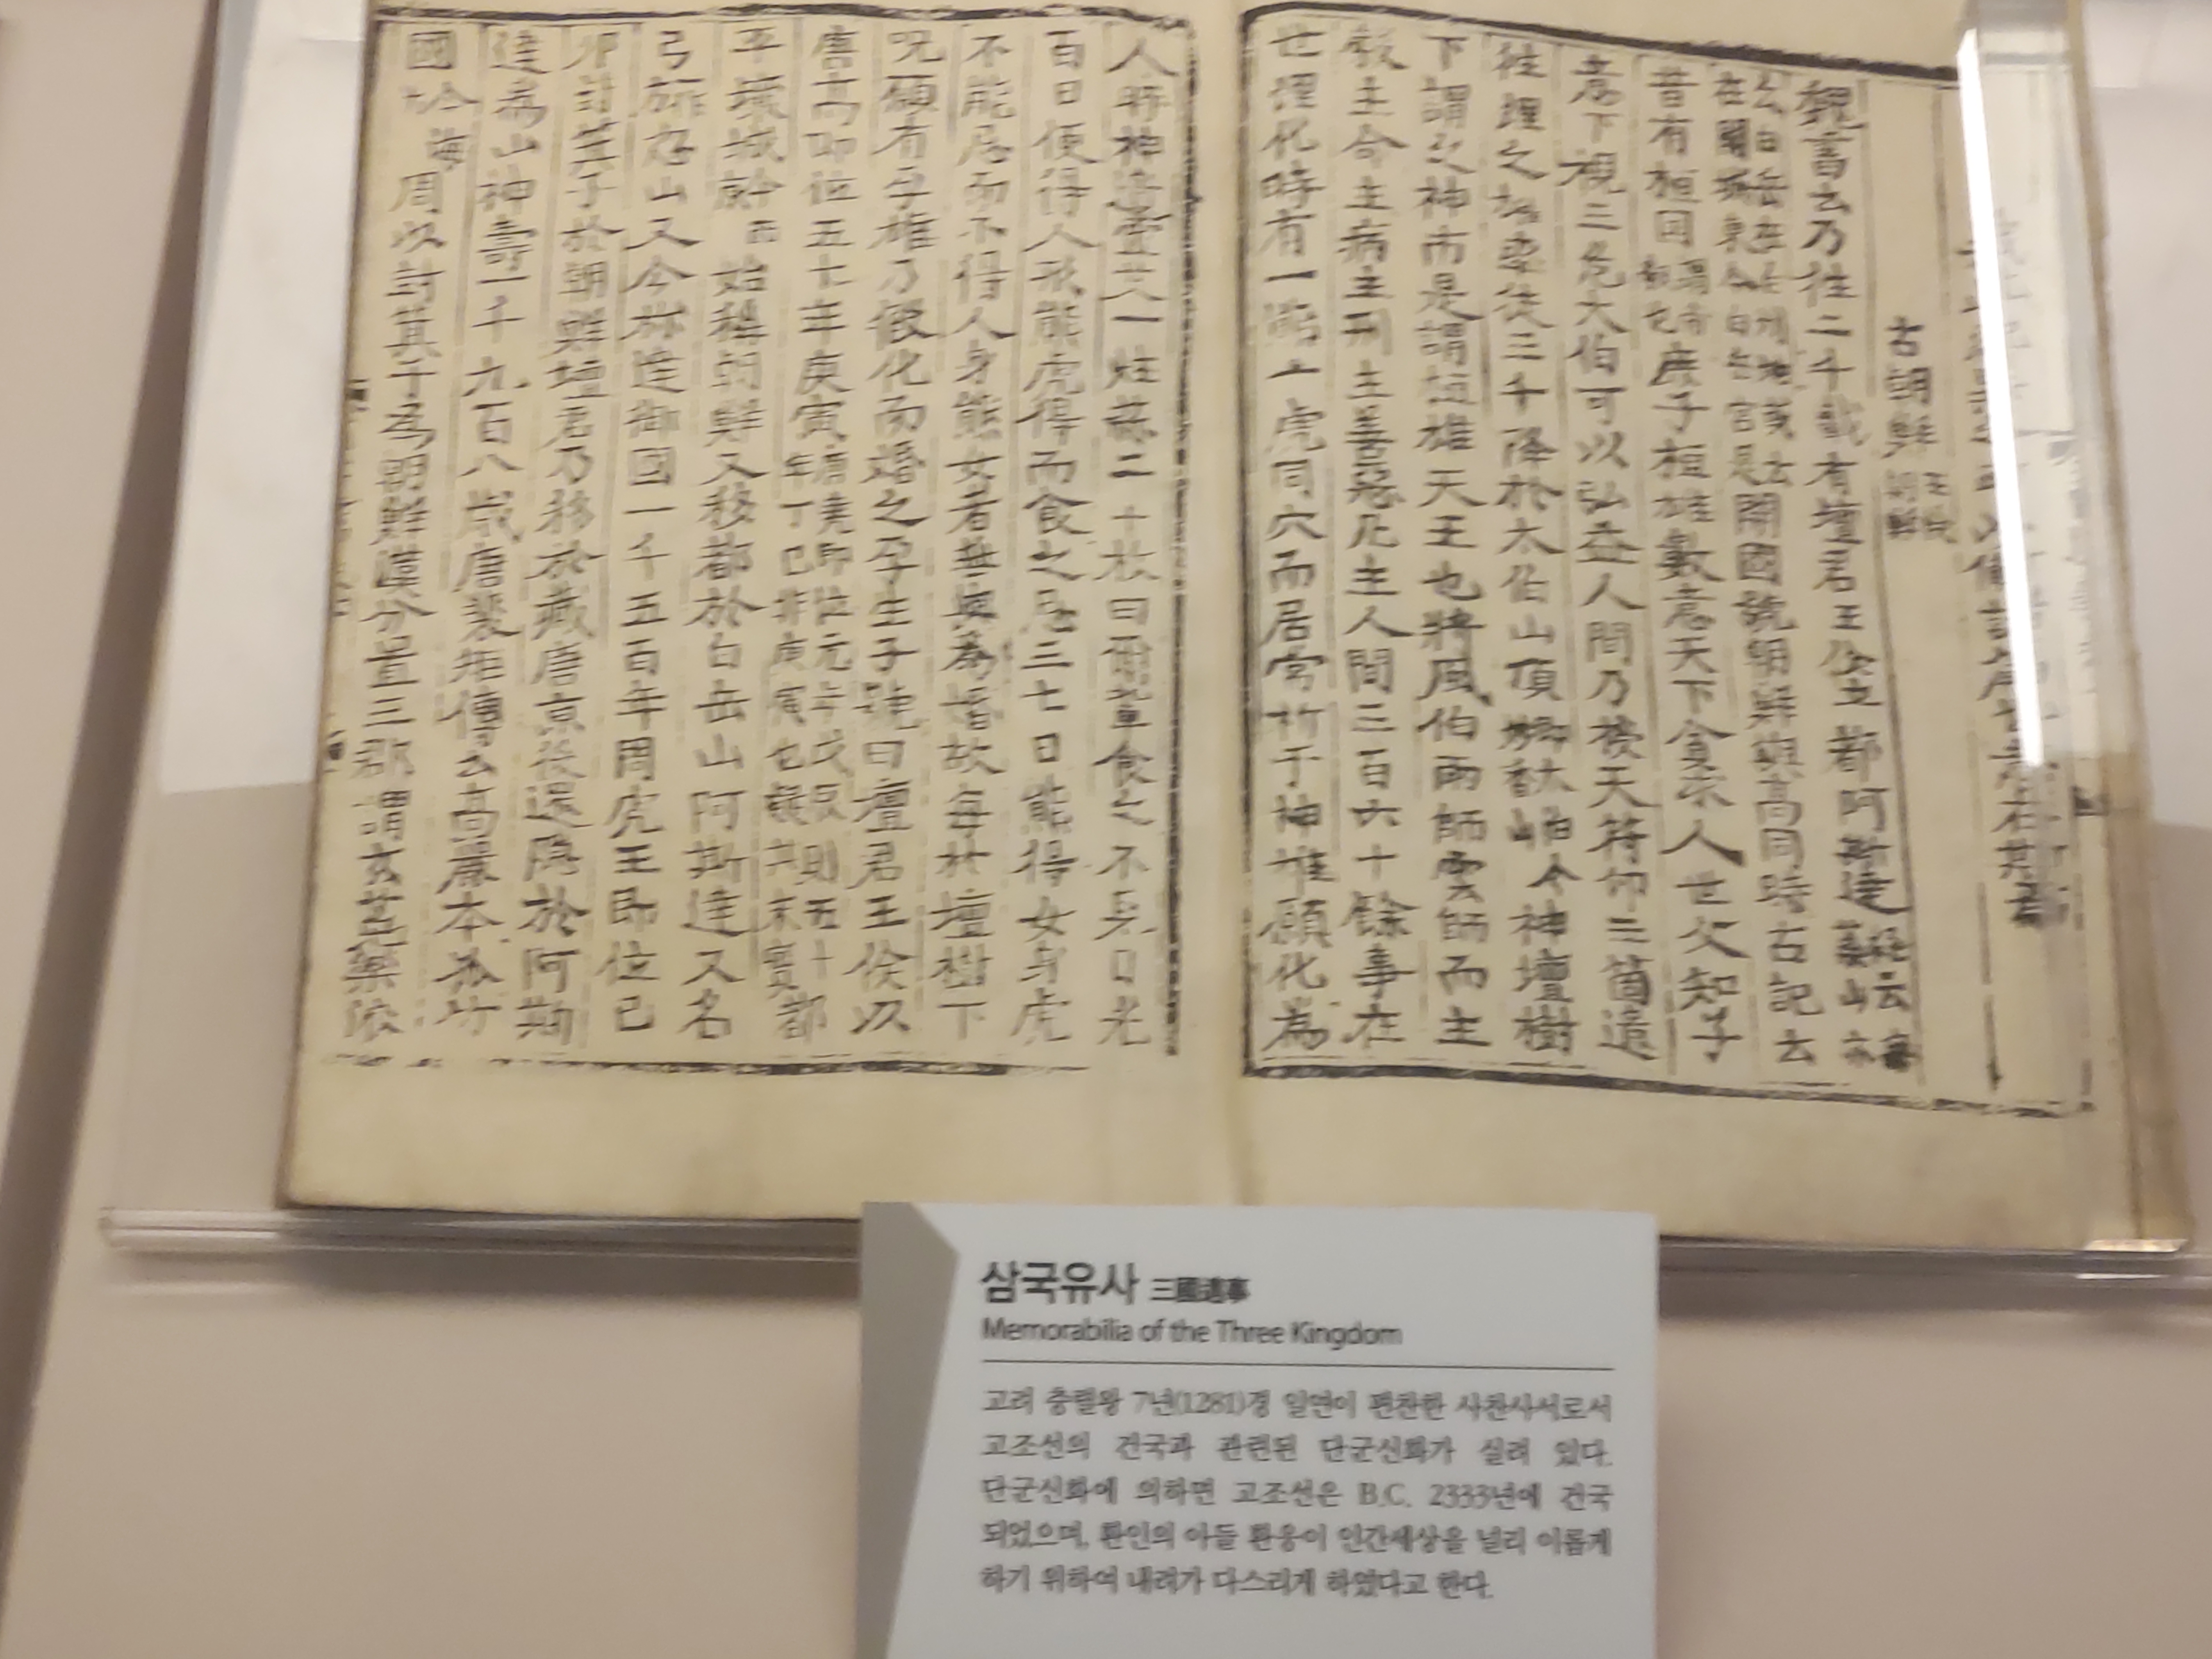 古朝鮮 王儉朝鮮
魏書云乃往二千載有壇君王儉立都阿斯達 經云無葉山亦
云白岳在白州地或云在開城東今白岳宮是 開國號朝鮮與高同時古記云
昔有桓囯 謂帝釋也 庶子桓雄數意天下貪求人世父知子
意下視三危太伯可以弘益人間乃授天符印三箇遣
往理之雄率徒三千降於太伯山頂 即太伯今妙香山 神壇樹
下謂之神市是謂桓雄天王也將風伯雨師雲師而主
糓主命主病主刑主善惡凡主人間三百六十餘事在
世理化時有一熊一虎同穴而居常祈于神雄願化為
人時神遺靈艾一炷蒜二十枚曰爾輩食之不見日光
百日便得人形熊虎得而食之忌三七日熊得女身虎
不能忌而不得人身熊女者無與為婚故每於壇樹下
呪願有孕雄乃假化而婚之孕生子號曰壇君王儉以
唐高即位五十年庚寅 唐堯即位元年戊辰則五十年丁巳非庚寅也疑其未實 都
平壤城 今西京 始稱朝鮮又移都於白岳山阿斯達又名
弓 一作方 忽山又今旀達御國一千五百年周虎王即位己
卯封箕子於朝鮮壇君乃移於藏唐京後還隱於阿斯
達為山神壽一千九百八歲唐裴矩傳云高麗本孤竹
國 今海州 周以封箕子為朝鮮漢分置三郡謂玄菟樂浪
삼국유사 三國遺事
Memorabilia of the Three Kingdom
고려 충렬왕 7년(1281)경 일연이 편찬한 사찬사서로서
고조선의 건국과 관련된 단군신화가 실려 있다.
단군신화에 의하면 고조선은 B.C. 2333년에 건국
되었으며, 환인의 아들 환웅이 인간세상을 널리 이롭게
하기 위하여 내려가 다스리게 하였다고 한다.